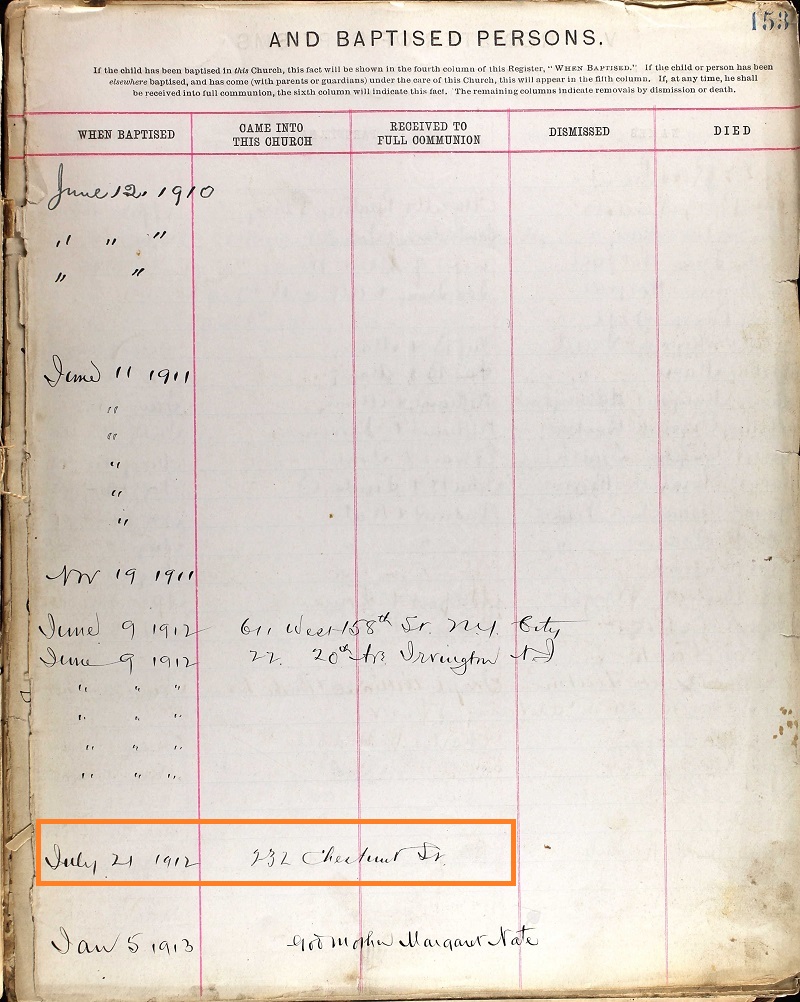 153
AND BAPTISED PERSONS.
If the child has been baptised in this Church, this fact will be shown in the fourth column of this Register, "WHEN BAPTISED." If the child or person has been
elsewhere baptised, and has come (with parents or guardians) under the care of this Church, this will appear in the fifth column. If, at any time, he shall
be received into full communion, the sixth column will indicate this fact. The remaining columns indicate removals by dismission or death.
WHEN BAPTISED CAME INTO THIS CHURCH RECEIVED TO FULL COMMUNION DISMISSED DIED
June 12, 1910
" " "
" "
June 11 1911
"
"
"
"
"
Nov 19 1911
June 9 1912 611 West 158th St. N.Y. City
June 9 1912 22. 20th Av. Irvington NJ
" " "
" " "
" " "
" " "
July 21 1912 232 Chestnut St.
Jan 5 1913 God Mother Margaret Nate